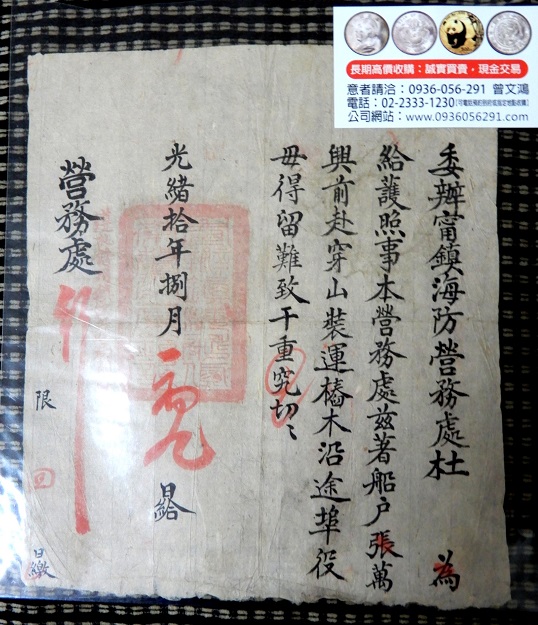 長期高價收購：誠實買賣・現金交易
意者請洽：0936-056-291 曾文鴻
電話：02-2333-1230
公司網站：www.0936056291.com
委辦甯鎮海防營務處杜 為
給護照事本營務處茲著船戶張萬
興前赴穿山裝運樁木沿途埠役
毋得留難致干重究切〻
光緒拾年捌月 日給
營務處
限 日繳